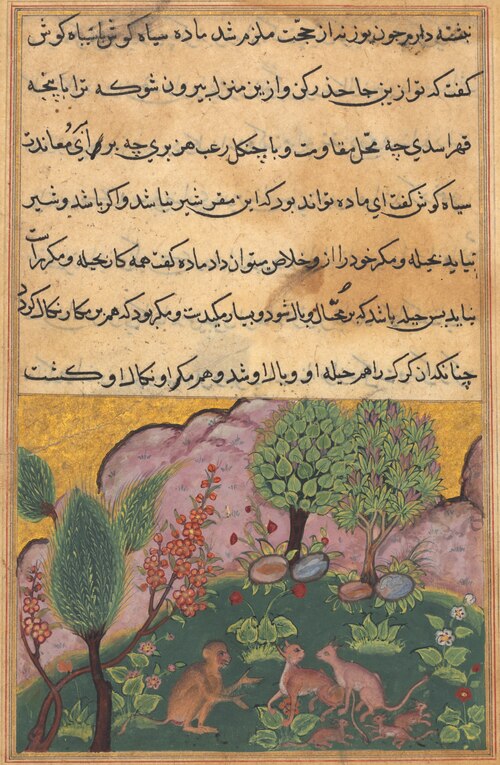 داریم چون بوزنه از حجت ملزم شد ماده سیاه گوش با سیاه گوش
گفت که تو ازین جا حذر کن و ازین منزل بیرون شو که ترا با پنجه
قهر اسدی چه محل مقاومت و با چنکل رعب هزبری چه برگ و رای معاندت
سیاه کوش گفت ای ماده تواند بود که این مقر شیر نباشد و اگر باشد و شیر
بیاید بحیله و مکر خود را از و خلاص میتوان داد ماده گفت همه کار بحیله و مکر راست
نیاید بس حیله باشد که بر محتال وبال شود و بسیار مکیدت و مکر بود که هم بر مکار نکال گردد
چنانکه ان گرگ را هم حیله او وبال او شد و هم مکر او نکال او گشت